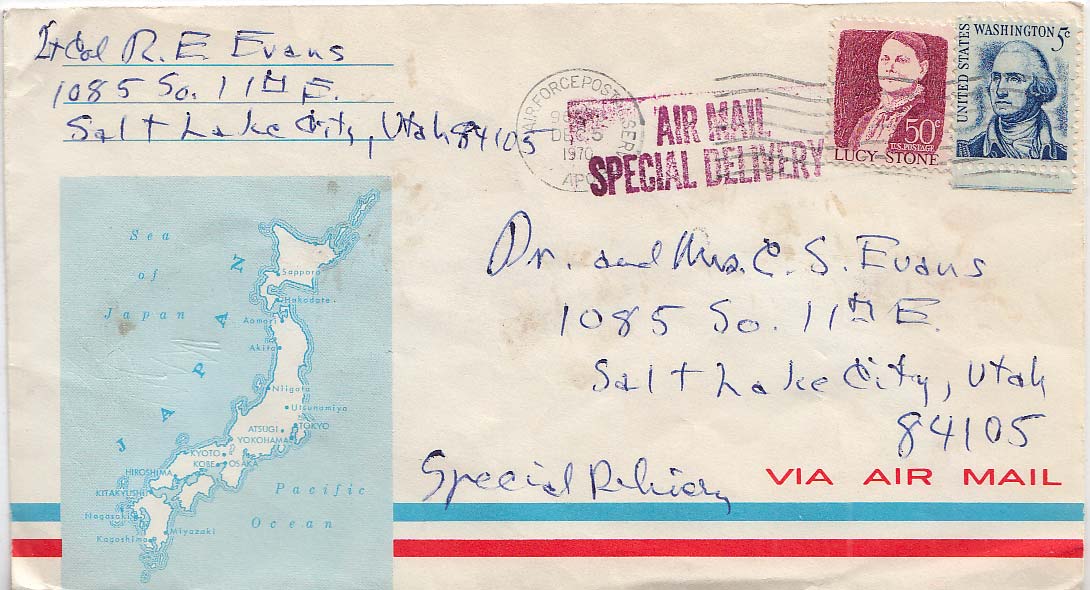 Lt Col R. E. Evans
1085 So. 11th E.
Salt Lake City, Utah 84105
AIR FORCE POSTAL SERV
DEC 5
1970
APO
AIR MAIL
SPECIAL DELIVERY
50c
U.S. POSTAGE
LUCY STONE
UNITED STATES
WASHINGTON 5c
Dr. and Mrs. C. S. Evans
1085 So. 11th E.
Salt Lake City, Utah
84105
Special Delivery
VIA AIR MAIL
Sea
of
Japan
JAPAN
Sapporo
Hakodate
Aomori
Akita
Niigata
Utsunomiya
ATSUGI
TOKYO
YOKOHAMA
KYOTO
KOBE
OSAKA
HIROSHIMA
KITAKYUSHU
Nagasaki
Miyazaki
Kagoshima
Pacific
Ocean